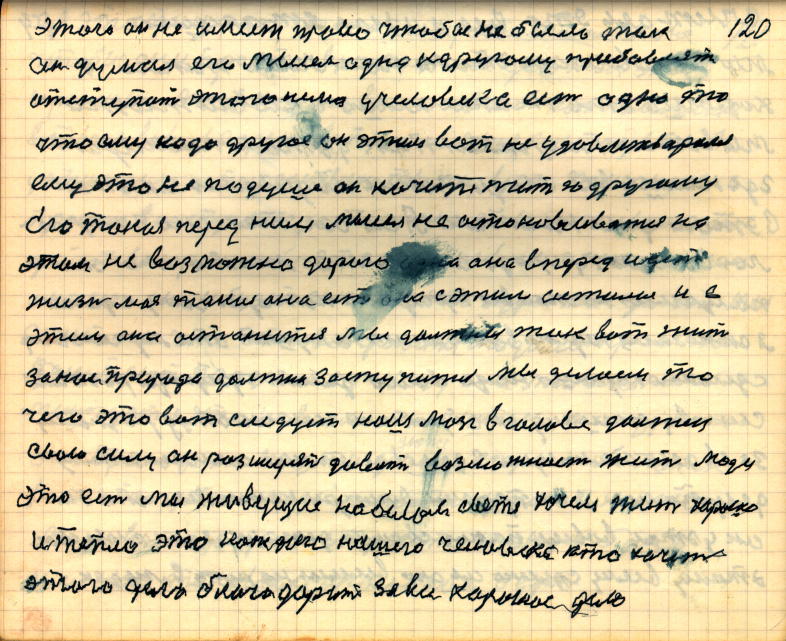 этого он не имеет право чтобы не было так 120
он думал его мысел одна к другому прибовлят
отступат этого нема у человека ест одно это
что ему надо другое он этим вот не удовлитварился
ему это не подуше он хочить жит по другому
Его такая перед ним мысля не остоновливатся на
этом не возможно дорога она вперед идет
жизн моя такая она ест она с этим осталася и с
этим она останится мы должны так вот жит
за нас природа должна заступится мы делаем то
чего это вот следует наш мозг в голове должен
свою силу он розширят дават возможност жит люди
это ест мы живущие на белом свете хочем жит хорошо
и тепло это каждого нашего человека кто хочет
этого дела благодарит за все хорошое дело